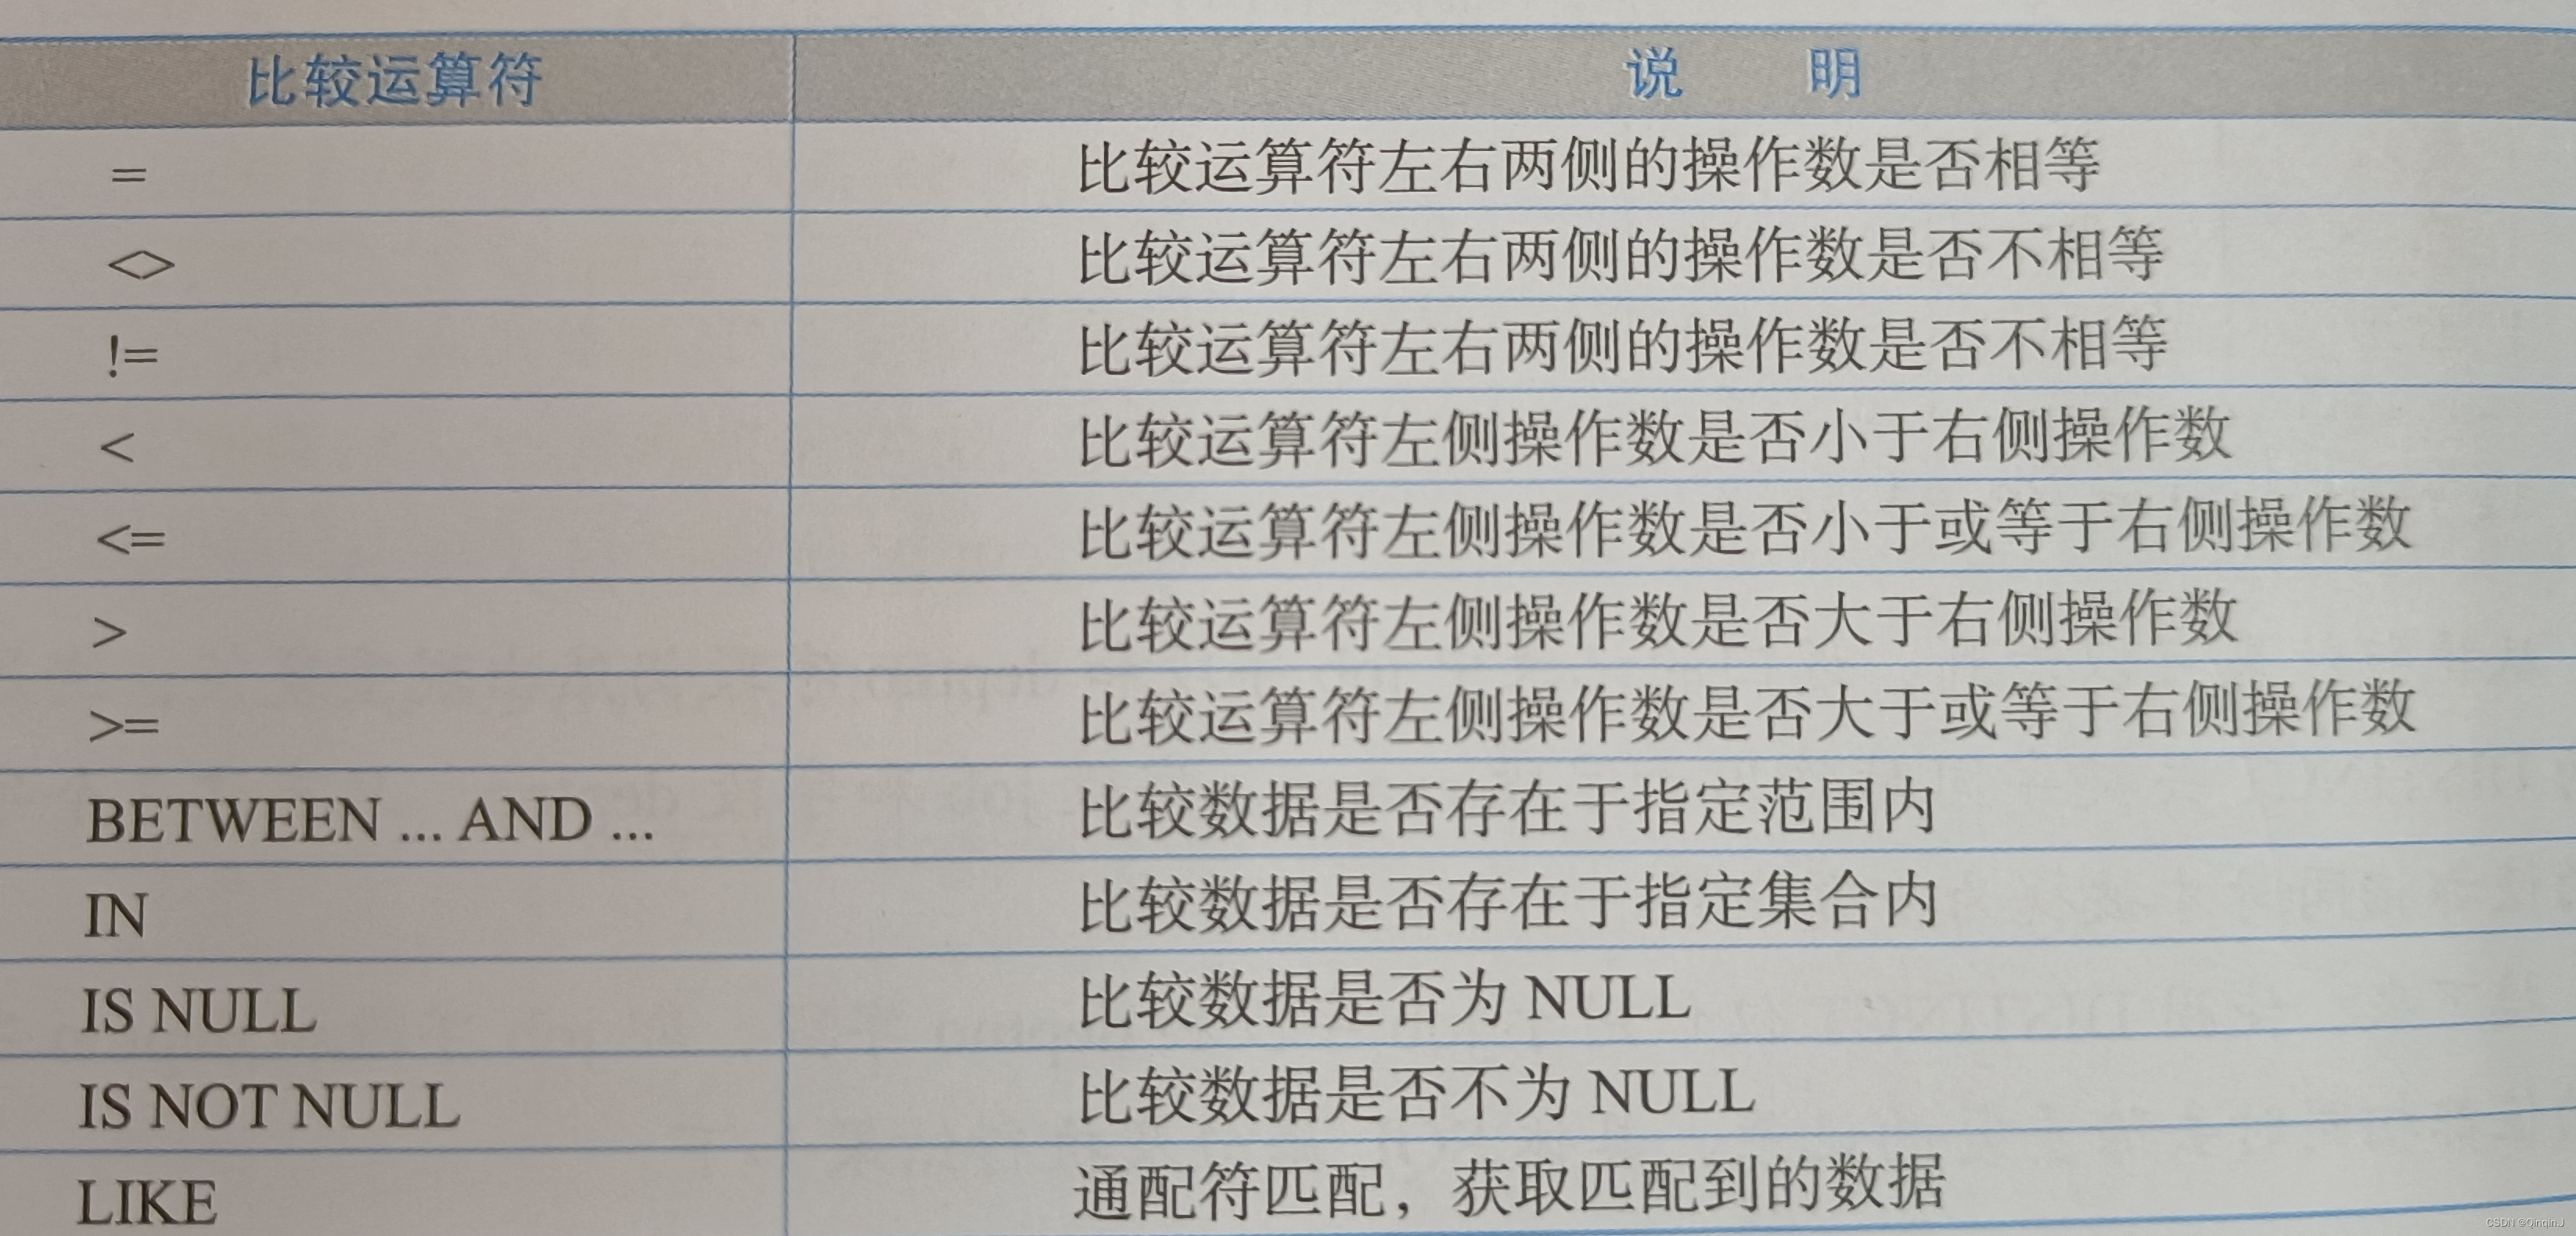 比较运算符 说 明
= 比较运算符左右两侧的操作数是否相等
<> 比较运算符左右两侧的操作数是否不相等
!= 比较运算符左右两侧的操作数是否不相等
< 比较运算符左侧操作数是否小于右侧操作数
<= 比较运算符左侧操作数是否小于或等于右侧操作数
> 比较运算符左侧操作数是否大于右侧操作数
>= 比较运算符左侧操作数是否大于或等于右侧操作数
BETWEEN ... AND ... 比较数据是否存在于指定范围内
IN 比较数据是否存在于指定集合内
IS NULL 比较数据是否为 NULL
IS NOT NULL 比较数据是否不为 NULL
LIKE 通配符匹配，获取匹配到的数据